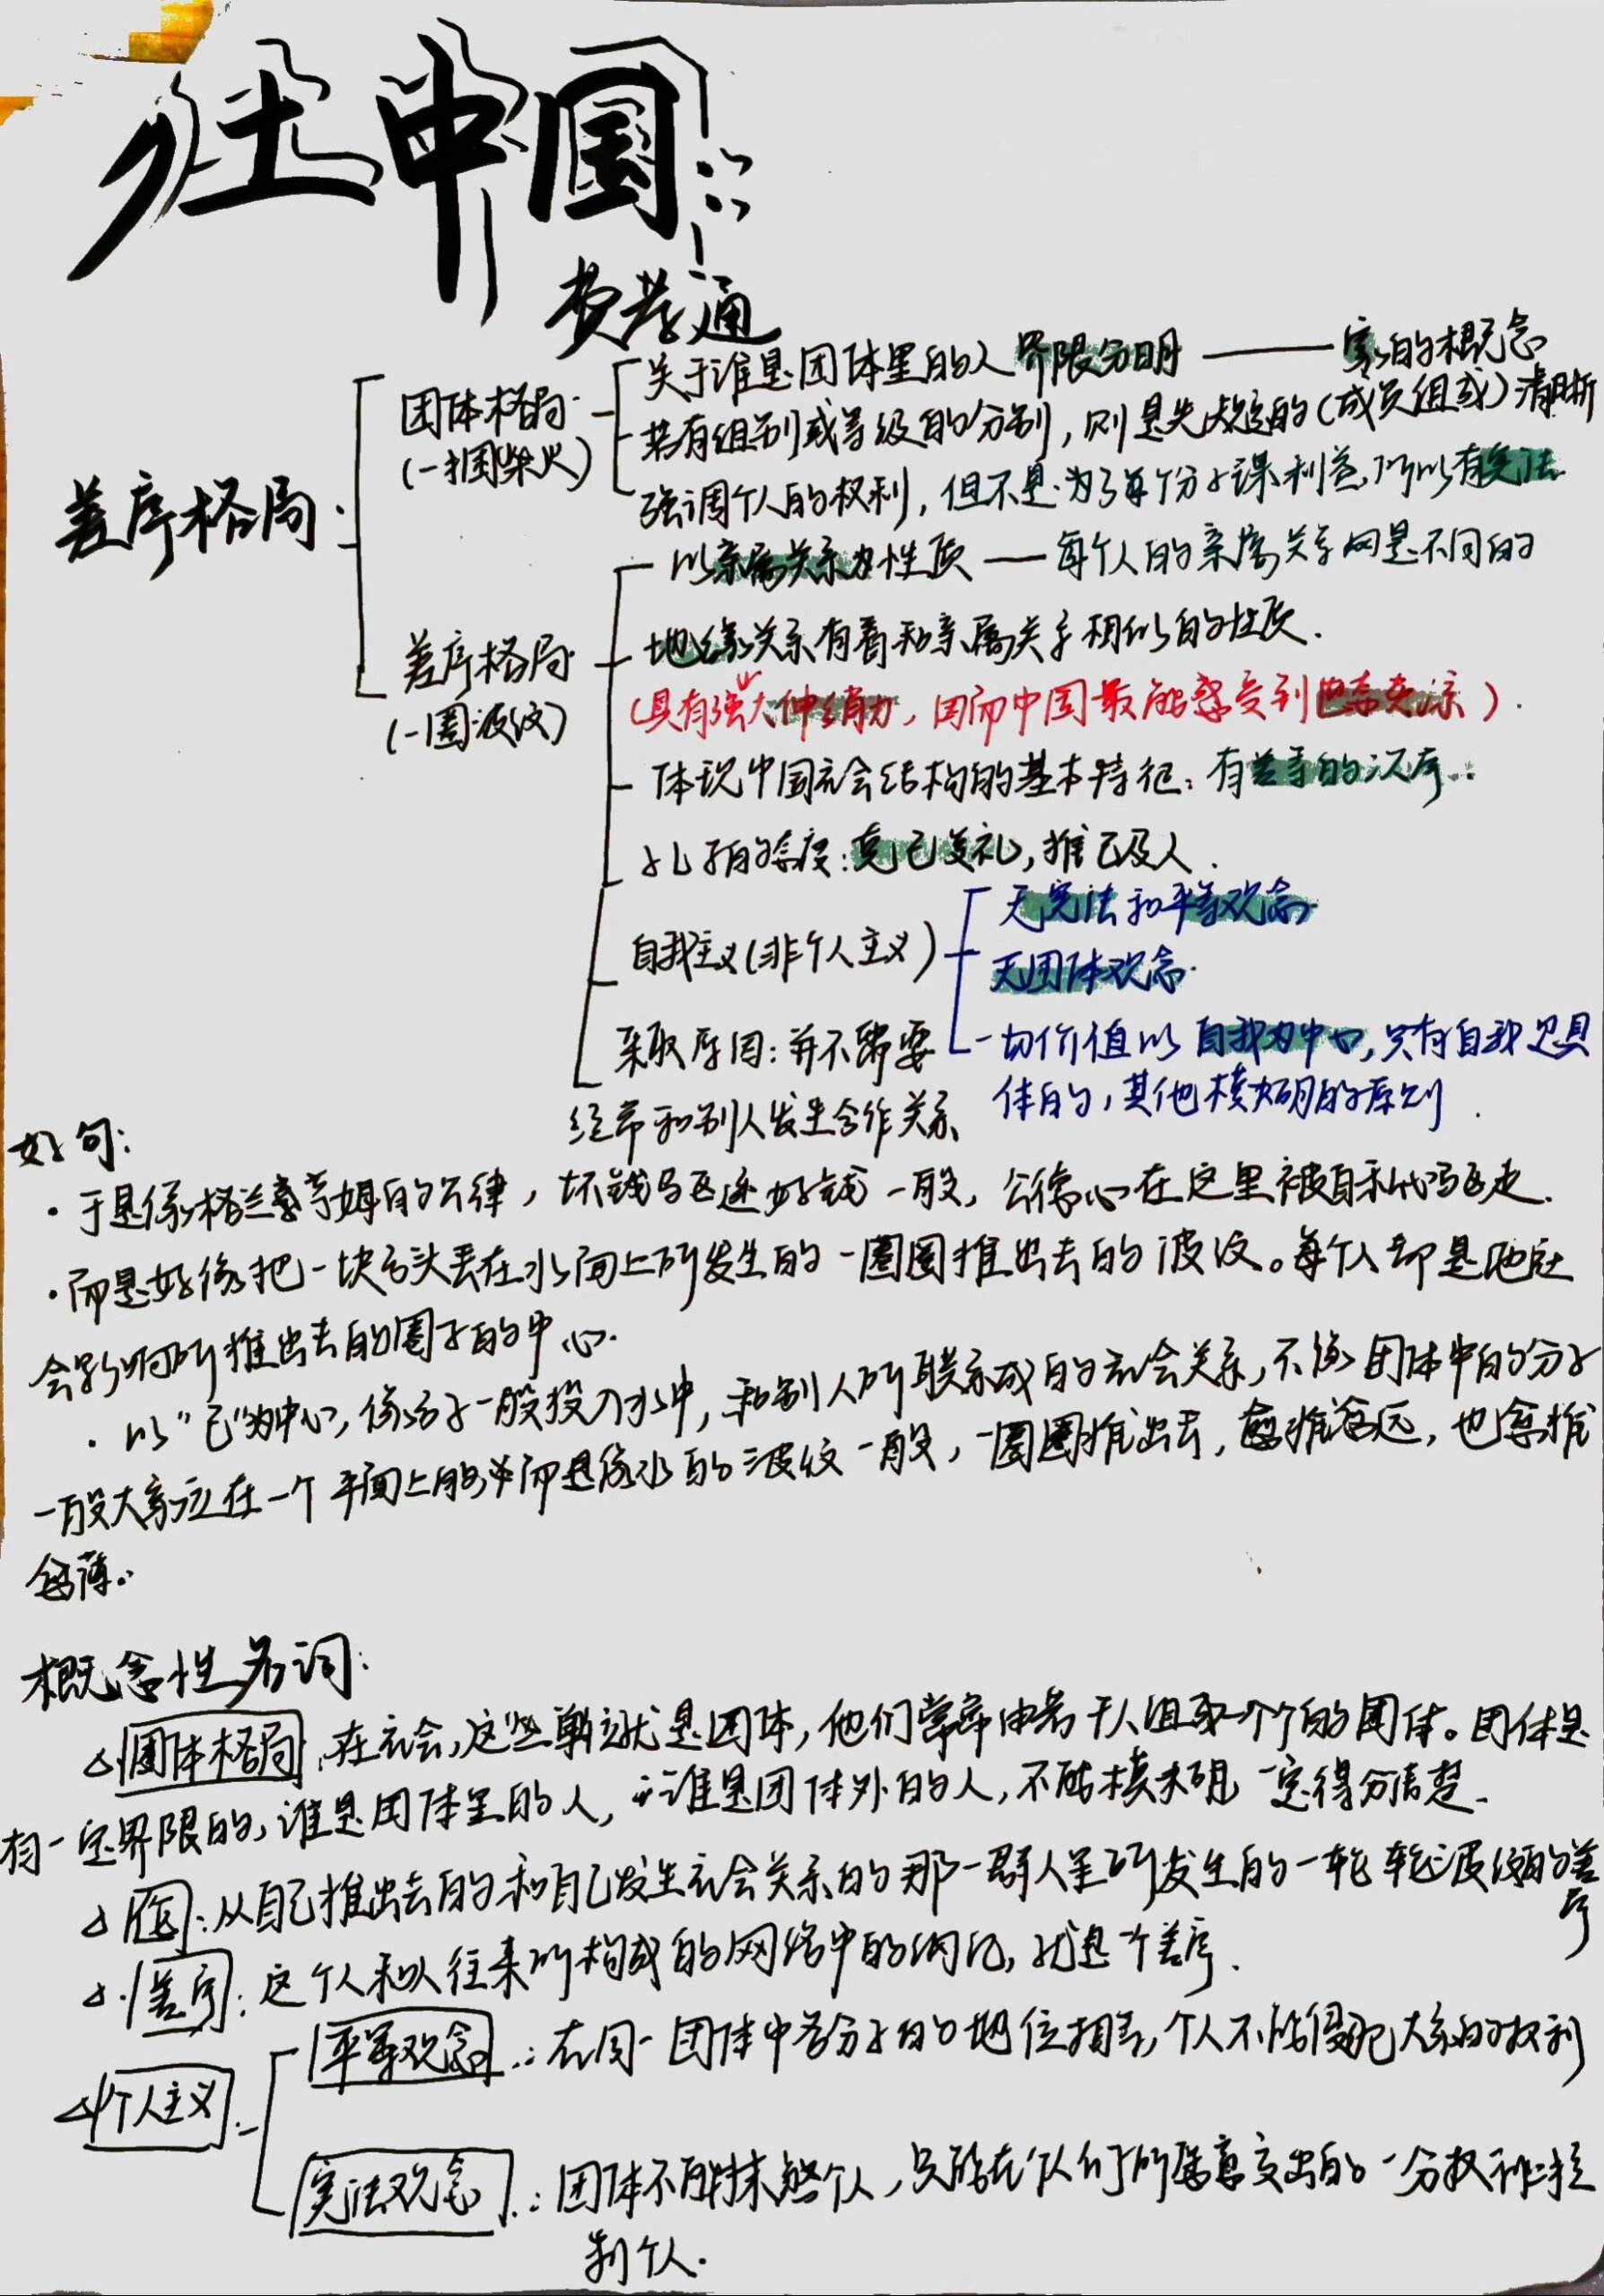 乡土中国
费孝通
差序格局
团体格局
(一捆柴火)
关于谁是团体里的人 界限分明 —— 家的概念
若有组别或等级的分别，则是先规定的(成员组或) 清晰
强调个人的权利，但不是为了每个分子谋利益，所以有宪法
差序格局
(一圈波纹)
以亲属关系为性质 — 每个人的亲属关系网是不同的
地缘关系有着和亲属关系相似的性质.
(具有强大伸缩力，因而中国最能感受到世态炎凉).
体现中国社会结构的基本特征：有差等的次序.
孔子的态度：克己复礼，推己及人.
自我主义(非个人主义)
无宪法和平等观念
无团体观念.
一切价值以自我为中心，只有自我是具
体的，其他模糊的原则.
采取原因：并不需要
经常和别人发生合作关系
好句：
·于是像格兰亨姆的公律，坏钱驱逐好钱一般，公德心在这里被自私心驱走.
·而是好像把一块石头丢在水面上所发生的一圈圈推出去的波纹。每个人都是他社
会影响所推出去的圈子的中心.
·以"己"为中心，像石子一般投入水中，和别人所联系成的社会关系，不像团体中的分子
一般大家立在一个平面上的，而是像水的波纹一般，一圈圈推出去，愈推愈远，也愈推
愈薄.
概念性名词：
团体格局：在社会，这些单位就是团体，他们常常由若干人组成一个个的团体。团体是
有一定界限的，谁是团体里的人，谁是团体外的人，不能模糊 一定得分清楚.
伦：从自己推出去的和自己发生社会关系的那一群人里所发生的一轮轮波纹的差
序
差序：这个人和人往来所构成的网络中的纲纪，就是一个差序.
个人主义：
平等观念：在同一团体中各分子的地位相等，个人不能侵犯大家的权利
宪法观念：团体不能抹煞个人，只能在个人们所愿意交出的一分权利上控
制个人.